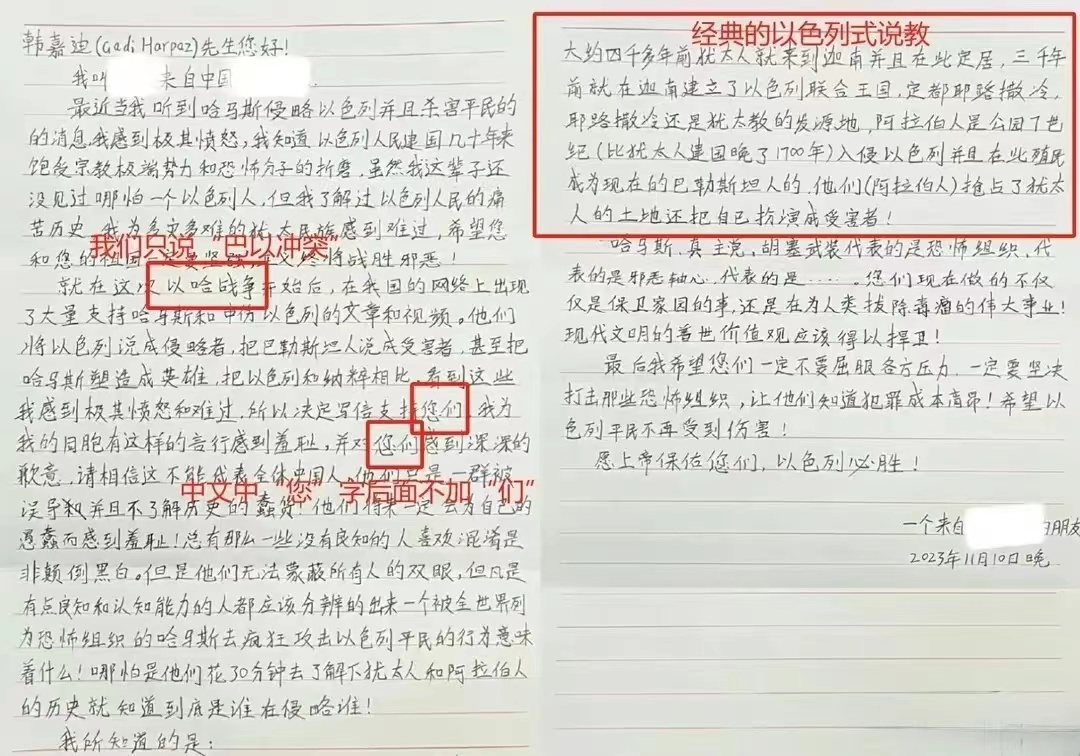 韩嘉迪(Gadi Harpaz)先生您好!
我叫 来自中国
最近当我听到哈马斯侵略以色列并且杀害平民的
的消息,我感到极其愤怒,我知道以色列人民建国几十年来
饱受宗教极端势力和恐怖分子的折磨,虽然我这辈子还
没见过哪怕一个以色列人,但我了解过以色列人民的痛
苦历史,我为多灾多难的犹太民族感到难过,希望您
我们只说“巴以冲突”
和您的祖国 终将战胜邪恶!
就在这次以哈战争开始后,在我国的网络上出现
了大量支持哈马斯和中伤以色列的文章和视频。他们
将以色列说成侵略者,把巴勒斯坦人说成受害者,甚至把
哈马斯塑造成英雄,把以色列和纳粹相比,看到这些
我感到极其愤怒和难过,所以决定写信支持您们,我为
我的同胞有这样的言行感到羞耻,并对您们感到深深的
歉意,请相信这不能代表全体中国人,他们只是一群被
中文中“您”字后面不加“们”
误导教并且不了解历史的蠢货!他们将来一定会为自己的
愚蠢而感到羞耻!总有那么一些没有良知的人喜欢混淆是
非颠倒黑白。但是他们无法蒙蔽所有人的双眼,但凡是
有点良知和认知能力的人都应该分辨的出来一个被全世界列
为恐怖组织的哈马斯去疯狂攻击以色列平民的行为意味
着什么!哪怕是他们花30分钟去了解下犹太人和阿拉伯人
的历史就知道到底是谁在侵略谁!
我所知道的是:
经典的以色列式说教
大约四千多年前犹太人就来到迦南并且在此定居,三千年
前就在迦南建立了以色列联合王国,定都耶路撒冷,
耶路撒冷还是犹太教的发源地,阿拉伯人是公园7世
纪(比犹太人建国晚了1700年)入侵以色列并且在此殖民
成为现在的巴勒斯坦人的,他们(阿拉伯人)抢占了犹太
人的土地还把自己扮演成受害者!
哈马斯、真主党、胡塞武装代表的是恐怖组织、代
表的是邪恶轴心、代表的是……。您们现在做的不仅
仅是保卫家园的事,还是在为人类拔除毒瘤的伟大事业!
现代文明的普世价值观应该得以捍卫!
最后我希望您们一定不要屈服各方压力,一定要坚决
打击那些恐怖组织,让他们知道犯罪成本高昂!希望以
色列平民不再受到伤害!
愿上帝保佑您们,以色列必胜!
一个来自 的朋友
2023年11月10日晚